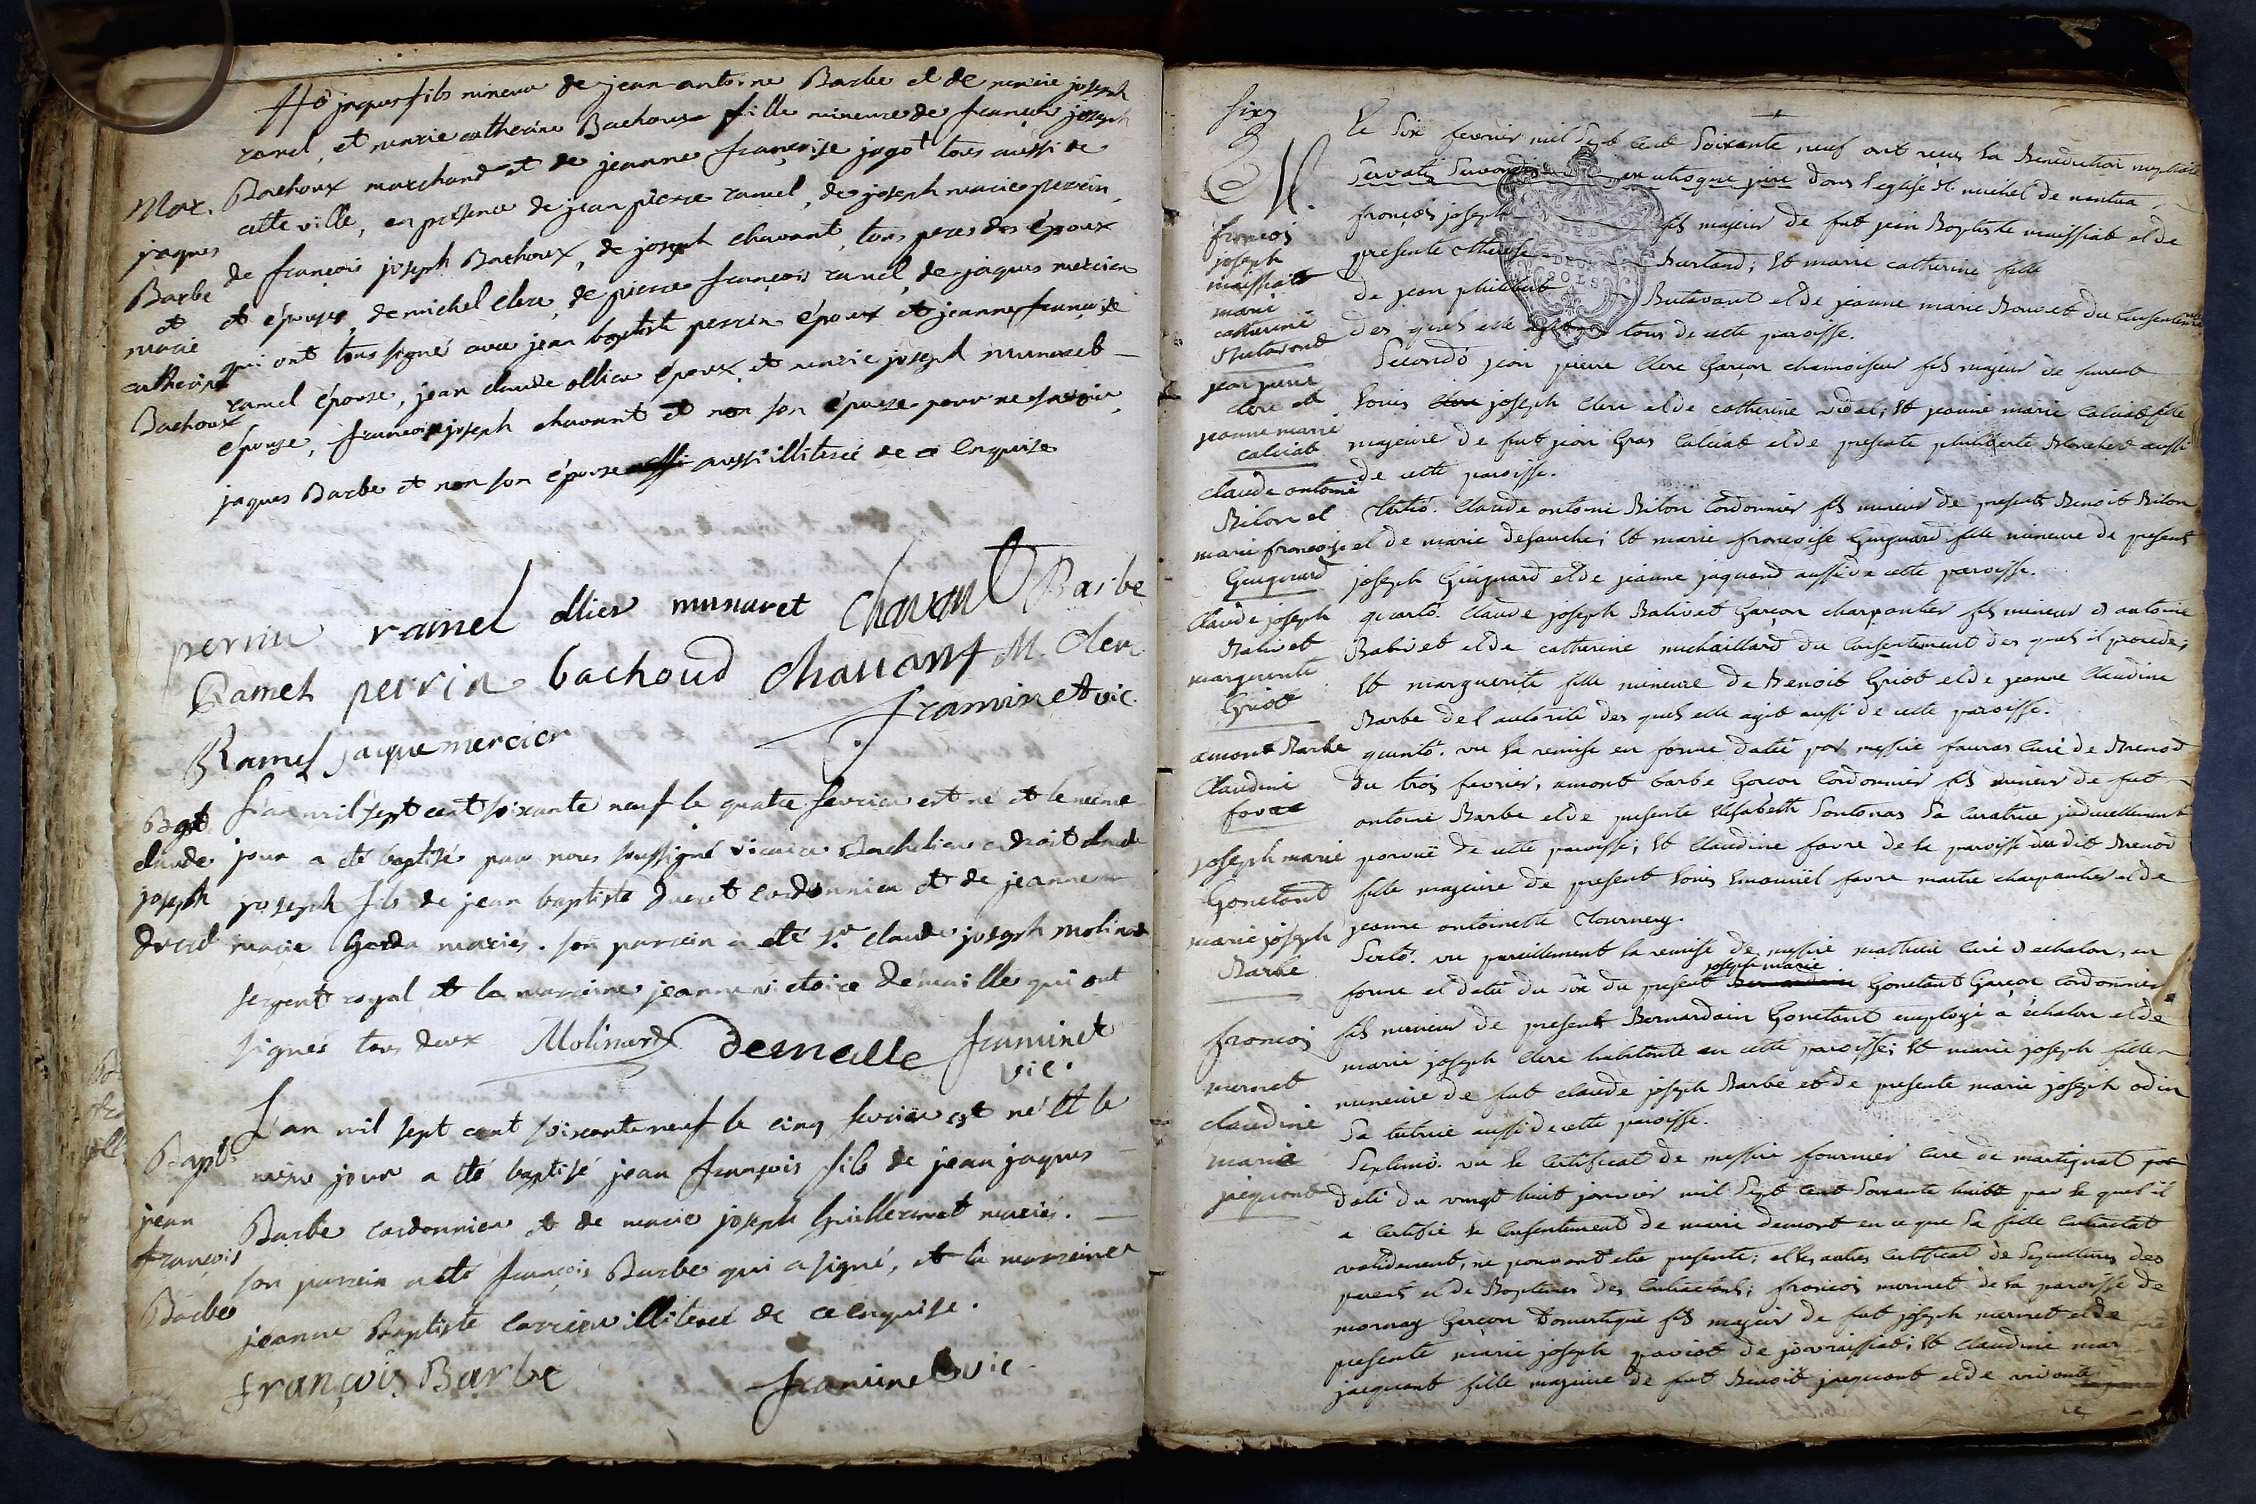 4to jaques fils mineur de jean antoine Barbe et de marie joseph
ramel, et marie catherine Bachoux fille mineure de françois joseph
Bachoux marchand et de jeanne françoise jagot tous aussi de
cette ville, en présence de jean pierre ramel, de joseph marie perrin,
de françois joseph Bachoux, de joseph chavant, tous peres des époux
et épouses, de michel clerc, de pierre françois ramel, de jaques mercier
qui ont tous signé avec jean baptiste perrin époux et jeanne françoise
ramel épouse, jean claude ollier époux, et marie joseph munaret
épouse, françois joseph chavant et non son épouse pour ne savoir,
jaques Barbe et non son épouse aussi illiterée de ce enquise
Mar.
jaques
Barbe
et
marie
catherine
Bachoux
perrin ramel ollier munaret Chavant Barbe
Ramel perrin bachoud chavant M. Clerc
framinet vic.
Ramel jaque mercier
Bapt.
claude
joseph
ducret
L'an mil sept cent soixante neuf le quatre fevrier est né et le même
jour a été baptisé par nous soussigné vicaire Bachelier en droit claude
joseph fils de jean baptiste ducret cordonnier et de jeanne
marie mariés. son parrein a été Sr. claude joseph molinard
sergent royal et la marreine jeanne victoire demaille qui ont
signés tous deux Molinard demeille framinet
vic.
Bapt.
jean
françois
Barbe
L'an mil sept cent soixante neuf le cinq fevrier est né et le
même jour a été baptisé jean françois fils de jean jaques
Barbe cordonnier et de marie joseph Guillermet mariés.
son parrein a été françois Barbe qui a signé, et la marreine
jeanne Baptiste illiterée de ce enquise.
françois Barbe framinet vic.
six
M.
françois
joseph
maissiat
marie
catherine
Butavand
jean pierre
clerc et
jeanne marie
calciat
Claude antoine
Bilon et
marie françoise
Guignard
Claude joseph
Balivet
marguerite
Griot
amont Barbe
Claudine
favre
joseph marie
Gonetant
marie joseph
Barbe
françois
mermet
claudine
marie
jacquont
Le six fevrier mil sept cent soixante neuf ont reçus la Benediction nuptiale
servatis servandis in utroque jure dans l'eglise St michel de nantua
françois joseph fils majeur de fut jean Baptiste maissiat et de
presente therese Bartand; Et marie catherine fille
de jean philibert Butavant et de jeanne marie Bouvet du consentement
des quels elle agit tous de cette paroisse.
Secundò jean pierre Clerc Garçon chamoiseur fils majeur de
Louis clerc joseph Clerc et de catherine vidal; Et jeanne marie Calciat fille
majeure de fut jean Gras Calciat et de presente philiberte Blanchet aussi
de cette paroisse.
tertiò. Claude antoine Bilon Cordonnier fils mineur de present Benoit Bilon
et de marie desauche; Et marie françoise Guignard fille mineure de present
joseph Guignard et de jeanne jaquand aussi de cette paroisse.
quartò. Claude joseph Balivet Garçon charpentier fils mineur d antoine
Balivet et de catherine michaillard du Consentement des quels il procede;
Et marguerite fille mineure de Benoit Griot et de jeanne Claudine
Barbe de l'autorité des quels elle agit aussi de cette paroisse.
quintò. vu la remise en forme datée par messire favras curé de Brenod
du trois fevrier, amont barbe Garçon Cordonnier fils mineur de fut
antoine Barbe et de presente Elisabeth Sontonas sa curatrice judiciellement
pourvuë de cette paroisse; Et Claudine favre de la paroisse du dit Brenod
fille majeure de present Louis Emanuël favre maitre charpentier et de
jeanne antoinette tournery.
Sextò. vu pareillement la remise de messire mathieu curé d echalon, en
forme et datée du six du present joseph marie Gonetant Garçon cordonnier
fils mineur de present Bernardain Gonetant employé à échalon et de
marie joseph Clerc habitante en cette paroisse; Et marie joseph fille
mineure de fut claude joseph Barbe et de presente marie joseph odin
sa tutrice aussi de cette paroisse.
Septimò. vu le Certificat de messire fournier curé de martignat
daté du vingt huit janvier mil sept cent soixante huit par le quel il
a certifié le Consentement de marie demont en ce que sa fille Contractat
validement, ne pouvant etre presente; et les autres Certificat de sepultures des
parents et de Baptemes des Contractants; françois mermet de la paroisse de
mornay Garçon Domestique fils majeur de fut joseph mermet et de
presente marie joseph paviot de jovraissiat; Et Claudine mar
jacquont fille majeure de fut Benoit jacquont et de